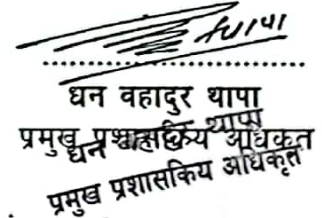 धन वहादुर थापा
प्रमुख प्रशासकिय अधिकृत
धन वहादुर थापा
प्रमुख प्रशासकिय अधिकृत